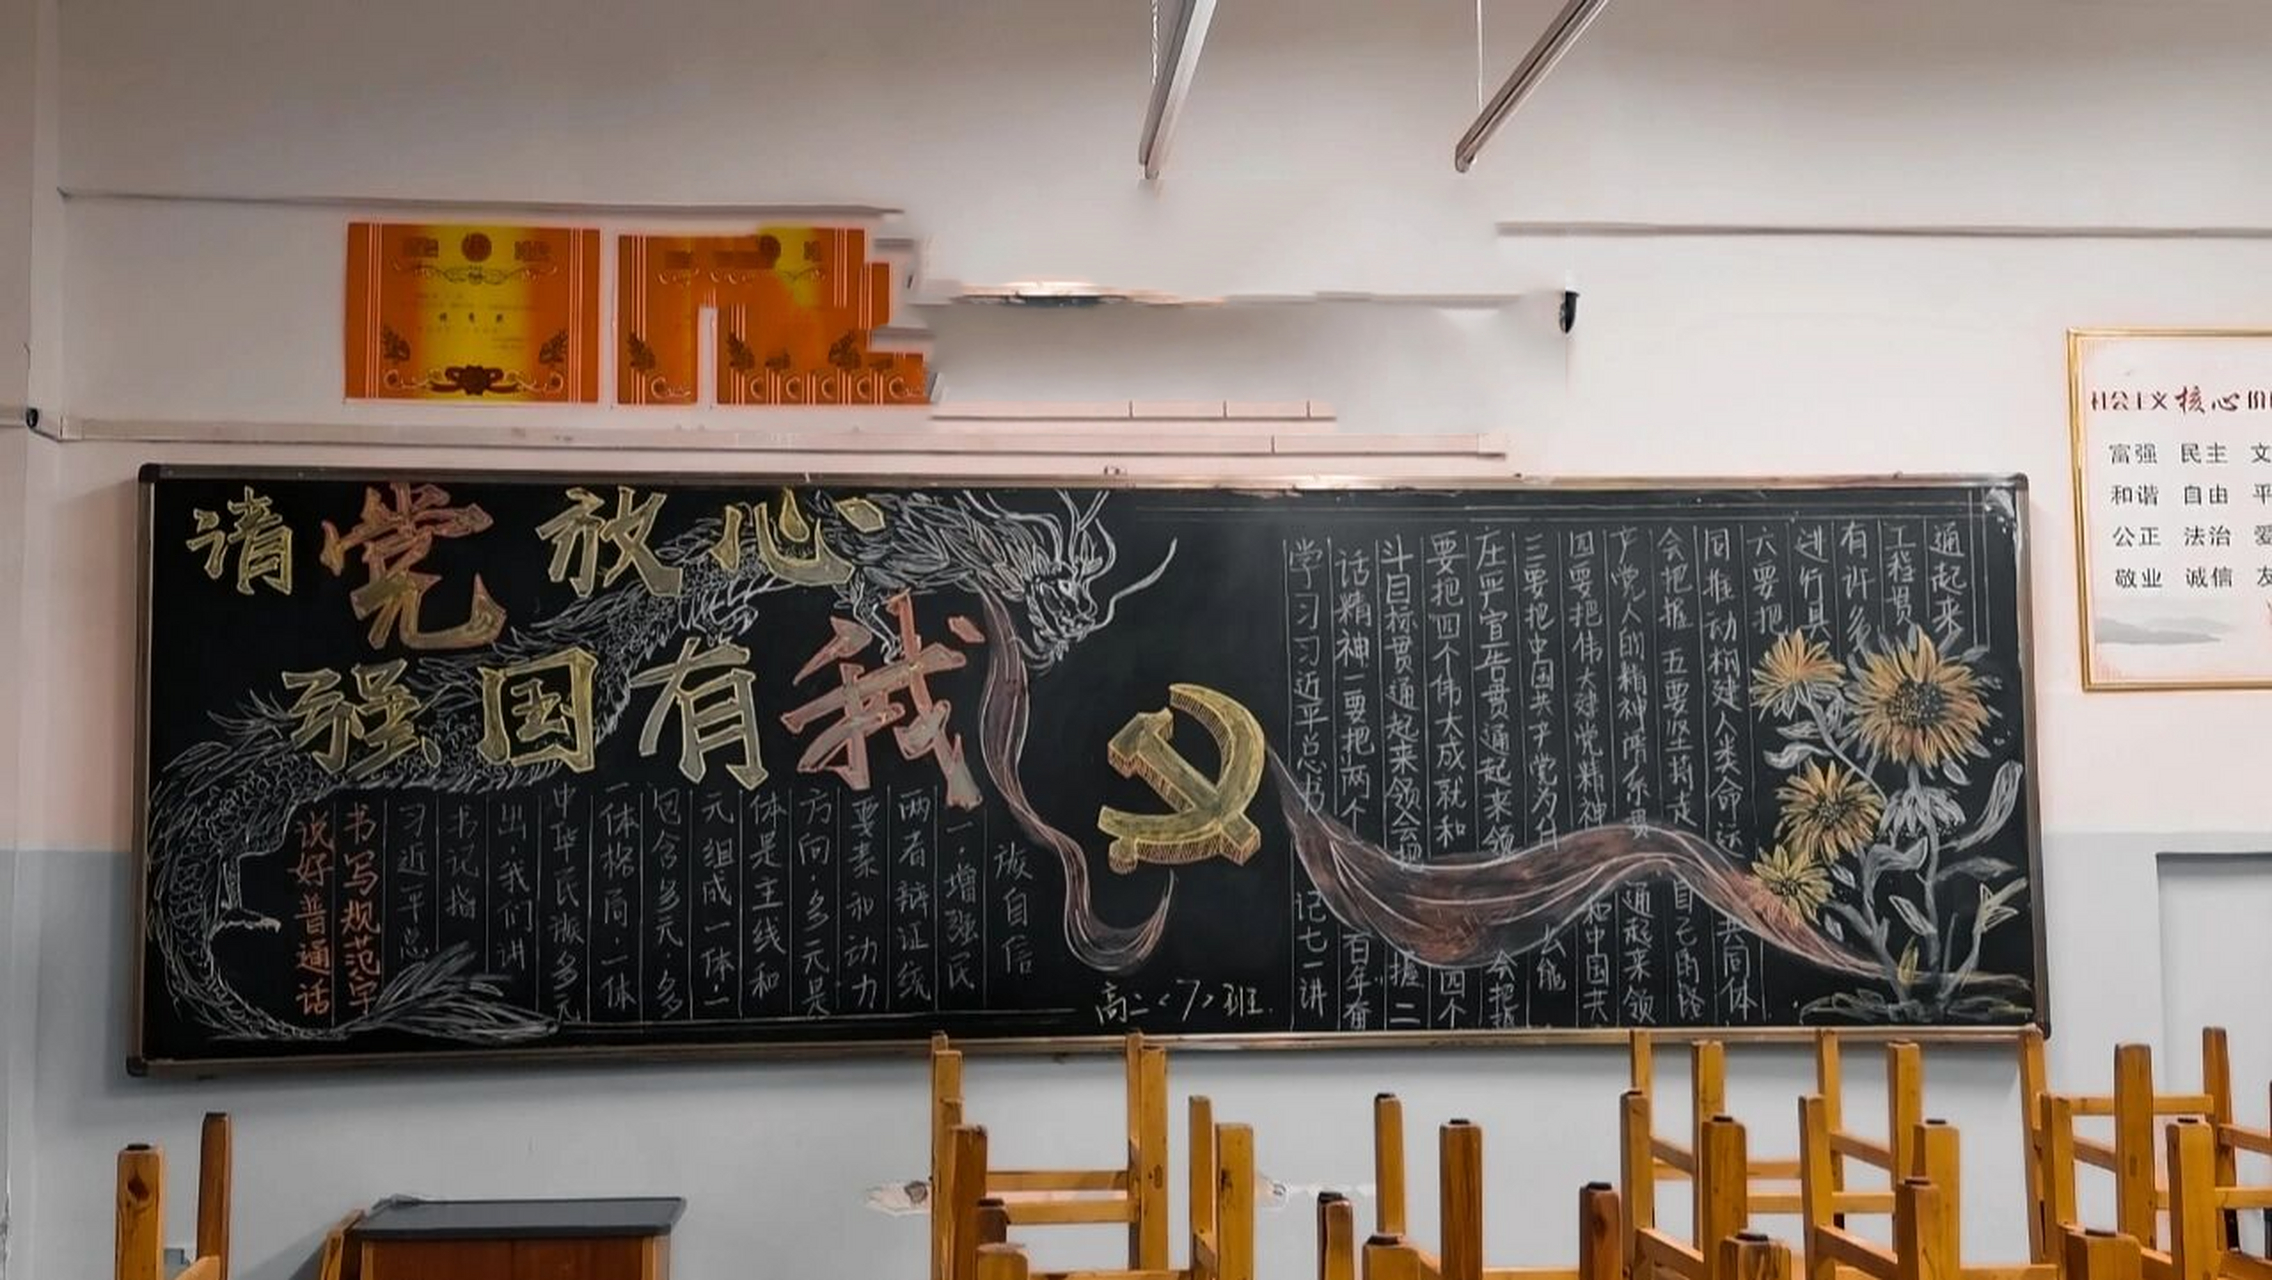 请党放心
强国有我
书写规范字
说好普通话
习近平总
书记指
出,我们讲
中华民族多元
一体格局,一体
包含多元,多
元组成一体,一
体是主线和
方向,多元是
要素和动力
两者辩证统
一,增强民
族自信
高二<7>班
学习习近平总书记七一讲
话精神一要把两个百年奋
斗目标贯通起来领会把握二
要把四个伟大成就和四个
庄严宣告贯通起来领会把握
三要把中国共产党为什么能
四要把伟大建党精神和中国共
产党人的精神谱系贯通起来领
会把握 五要坚持走自己的路
同推动构建人类命运共同体
六要把
进行具
有许多
工程贯
通起来
社会主义核心价
富强 民主 文
和谐 自由 平
公正 法治 爱
敬业 诚信 友